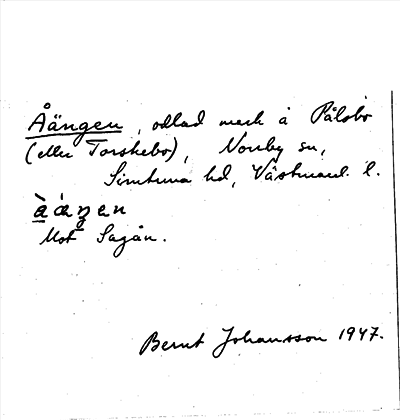 Åängen, odlad mark å Pålsbo
(eller Torskebo), Norrby sn,
Simtuna hd, Västmanl. l.
å̀áŋen
Mot Sagån.
Bernt Johansson 1947.